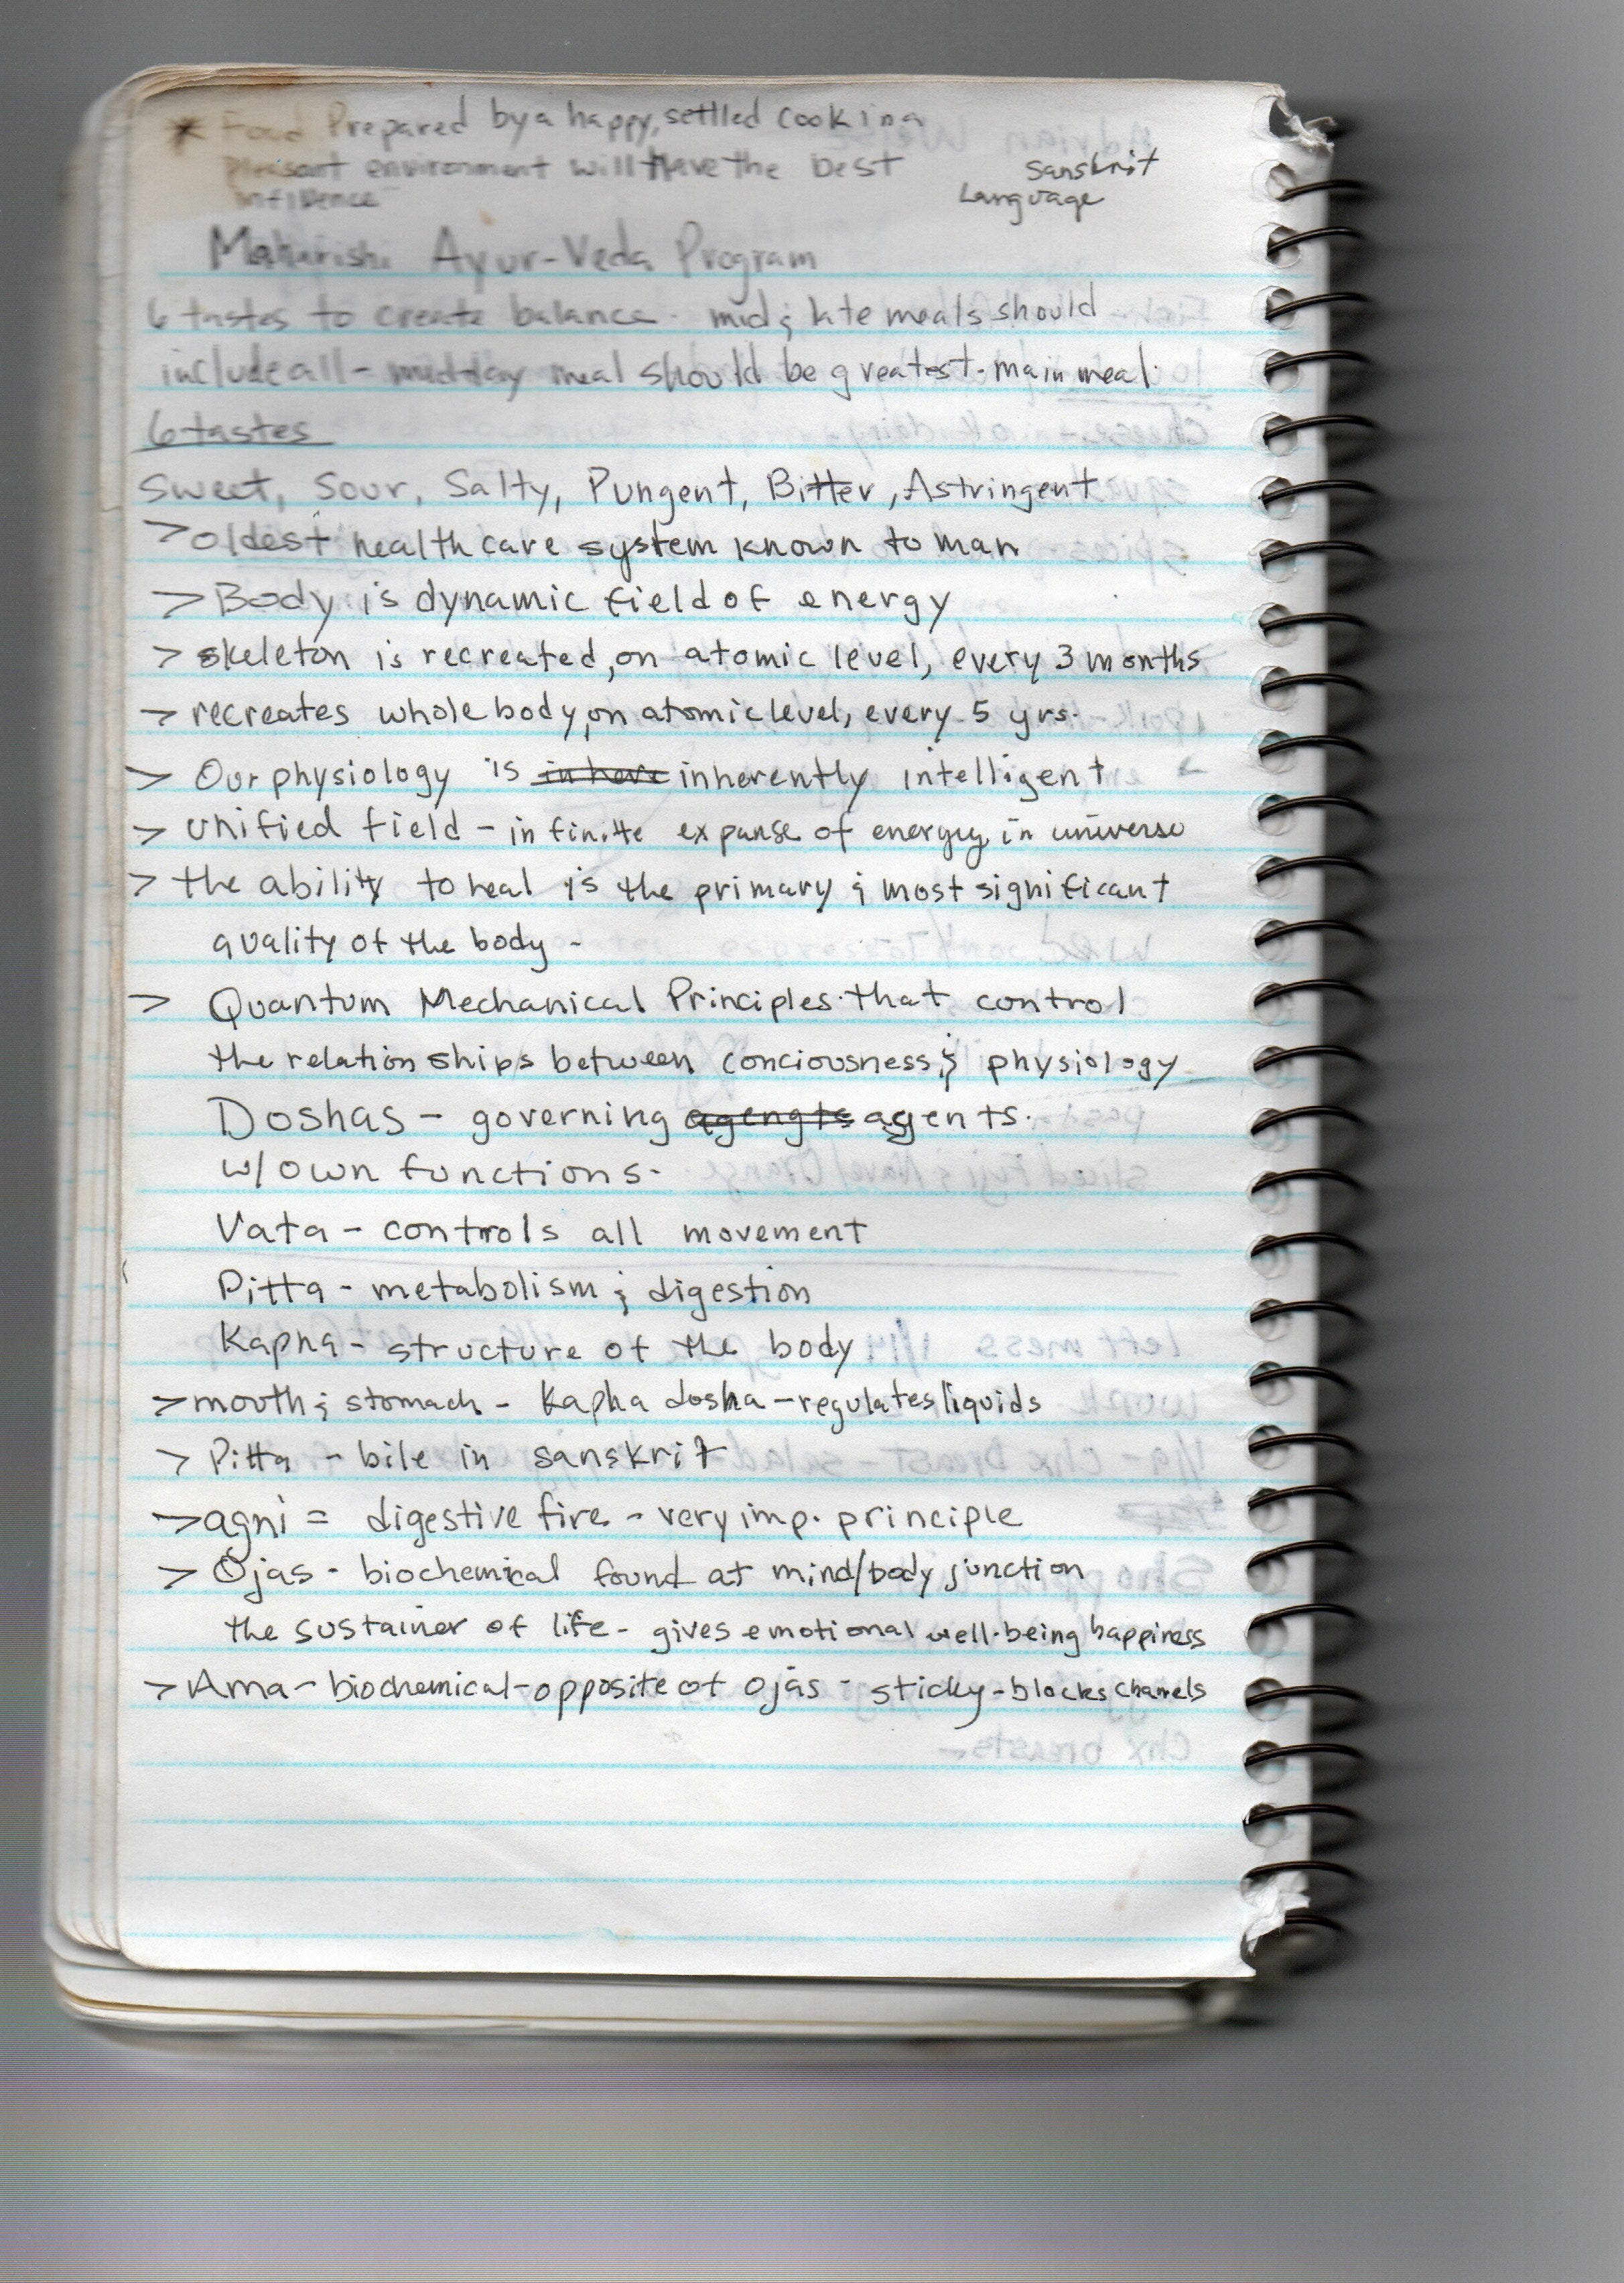 * Food Prepared by a happy, settled cook in a
Pleasant environment will have the best
influence
Sanskrit
Language
Maharishi Ayur-Veda Program
6 tastes to create balance - mid & late meals should
include all - midday meal should be greatest - main meal.
6 tastes
Sweet, Sour, Salty, Pungent, Bitter, Astringent
> oldest health care system known to man
> Body is dynamic field of energy
> skeleton is recreated, on atomic level, every 3 months
> recreates whole body, on atomic level, every 5 yrs.
> Our physiology is in here inherently intelligent
> unified field - infinite expanse of energy in universe
> the ability to heal is the primary & most significant
quality of the body -
> Quantum Mechanical Principles that control
the relationships between conciousness & physiology
Doshas - governing agengts agents.
w/ own functions.
Vata - controls all movement
Pitta - metabolism & digestion
Kapha - structure of the body
> mouth & stomach - Kapha dosha - regulates liquids
> Pitta - bile in sanskrit
> agni = digestive fire - very imp. principle
> Ojas - biochemical found at mind/body junction
the sustainer of life - gives emotional well-being happiness
> Ama - biochemical - opposite of ojas - sticky - blocks channels